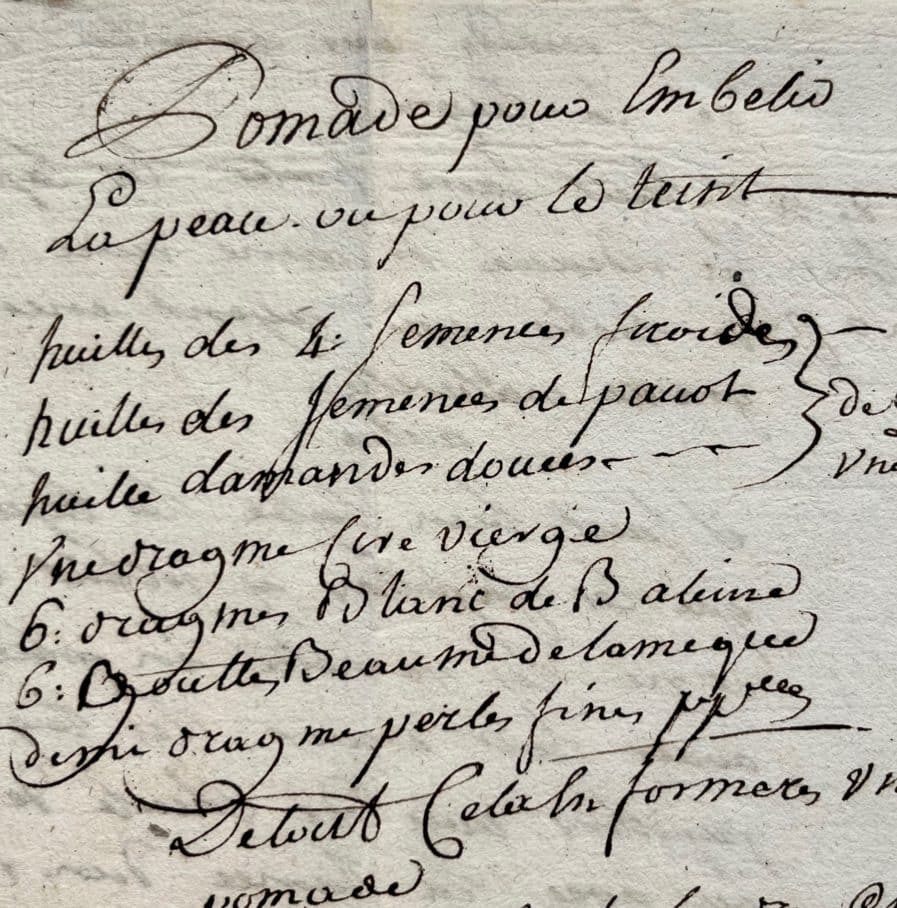 Pomade pour Embelir
La peau ou pour le teint
huilles des 4: semences froides
huilles des semences de pavot de
huille damandes douces
Vne dragme Cire vierge
6: dragmes Blanc de Baleine
6: Gouttes Beaume de lameque
demi dragme perles fines ppées
De tout Cela En formeres
pomade